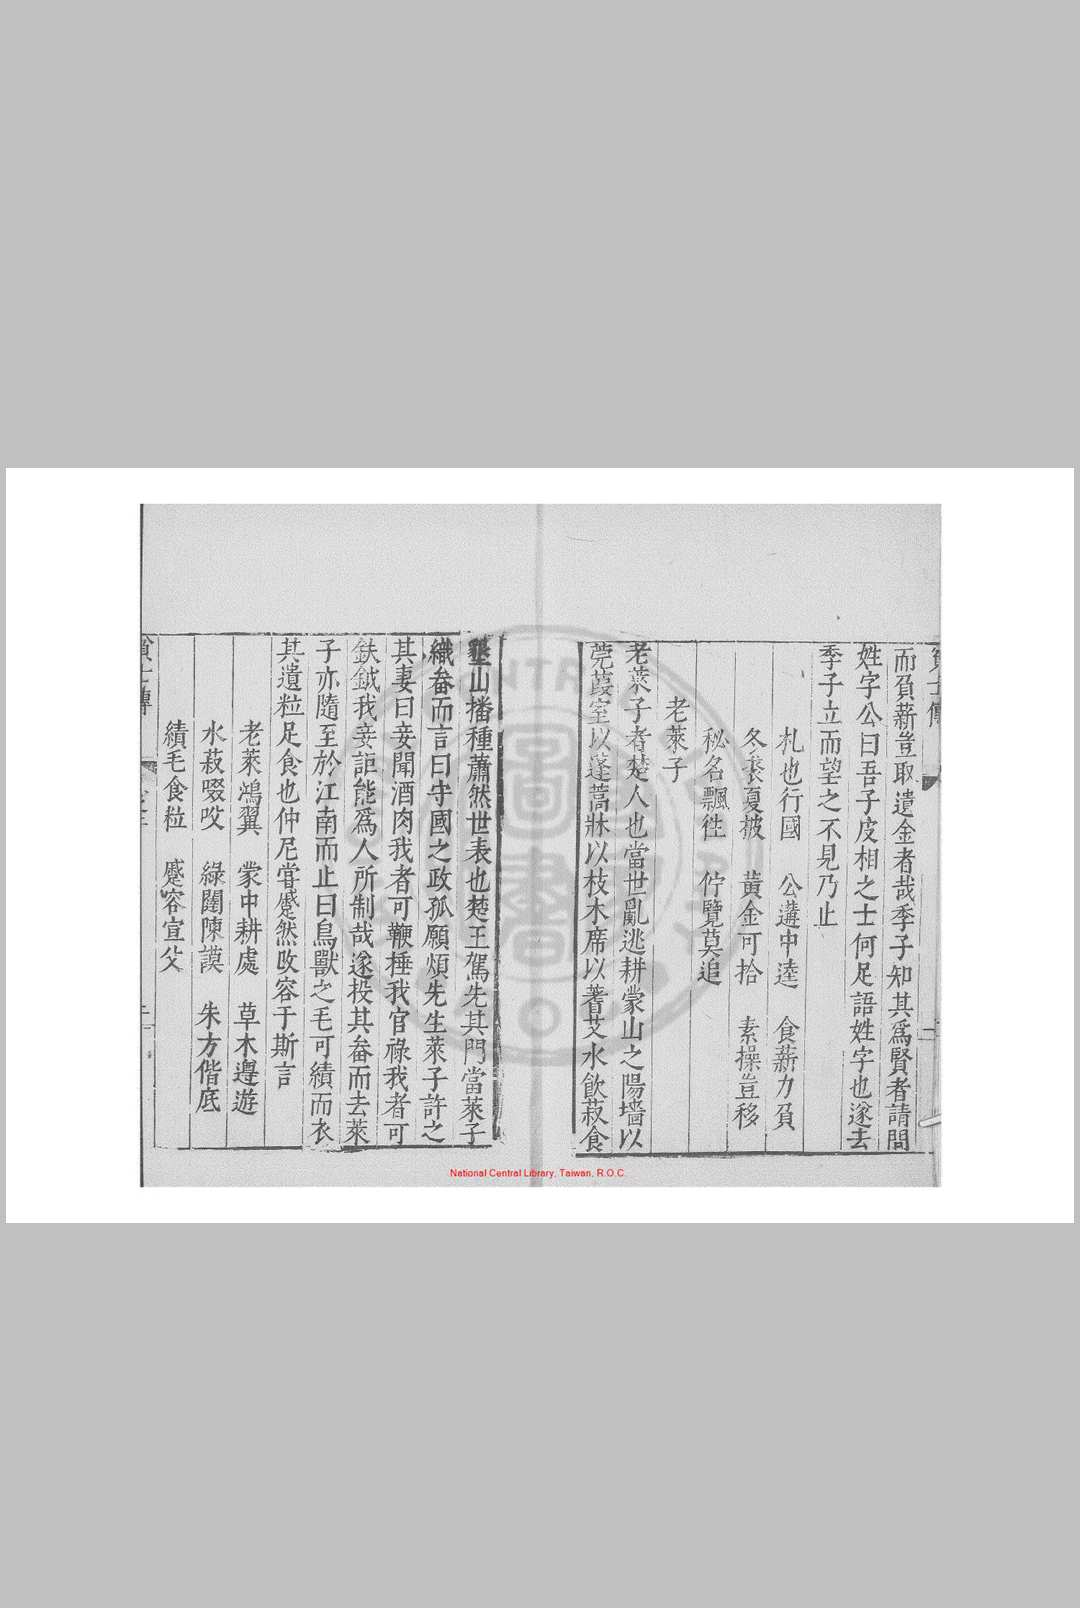 而負薪豈取遺金者哉季子知其爲賢者請問
姓字公曰吾子皮相之士何足語姓字也遂去
季子立而望之不見乃止
札也行國 公遘中逵 食薪力負
冬裘夏披 黃金可拾 素操豈移
秘名飄徃 佇覽莫追
老萊子
老萊子者楚人也當世亂逃耕蒙山之陽墻以
莞葭室以蓬蒿牀以枝木席以蓍艾水飲菽食
墾山播種蕭然世表也楚王駕先其門當萊子
織畚而言曰守國之政孤願煩先生萊子許之
其妻曰妾聞酒肉我者可鞭棰我官祿我者可
鈇鉞我妾詎能爲人所制哉遂投其畚而去萊
子亦隨至於江南而止曰鳥獸之毛可績而衣
其遺粒足食也仲尼甞蹙然改容于斯言
老萊鴻翼 蒙中耕處 草木遌遊
水菽啜咬 綠闈陳謨 朱方偕底
績毛食粒 蹙容宣父
National Central Library, Taiwan, R.O.C.